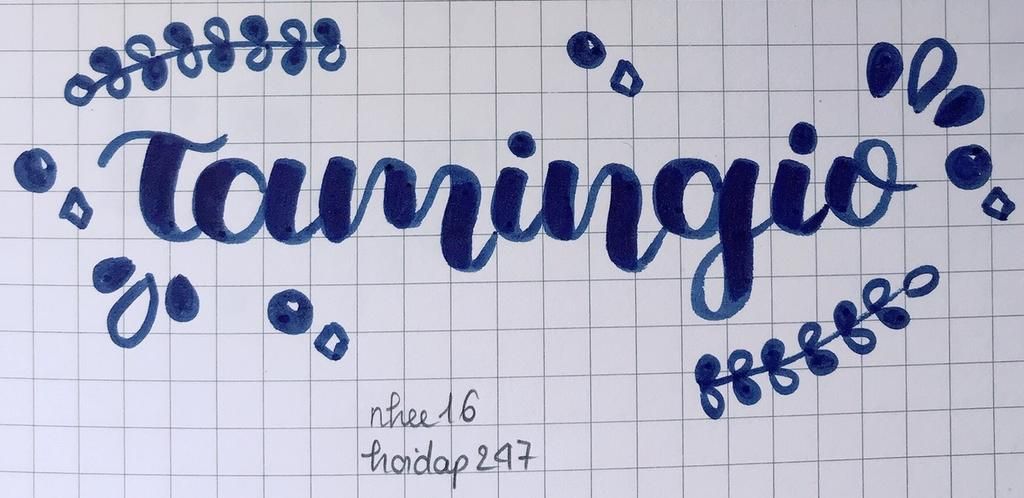 Tamingio
nhee16
hoidap247